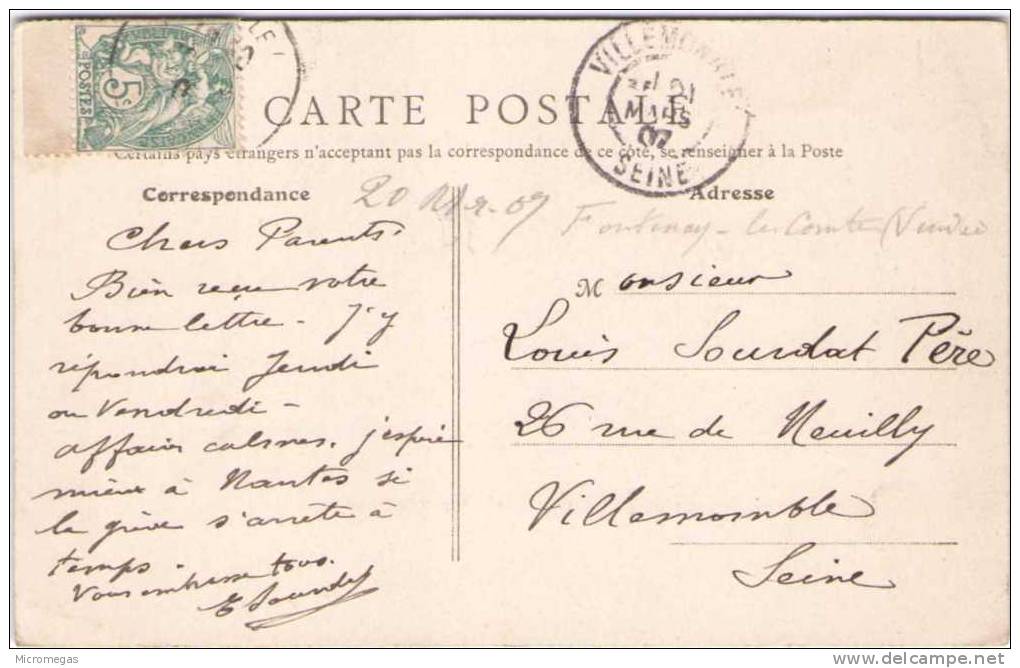 POSTES
5c
VILLEMOMBLE
21
MARS
07
SEINE
CARTE POSTALE
Certains pays étrangers n'acceptent pas la correspondance de ce côté, se renseigner à la Poste
Correspondance
20 Mar-07
Chers Parents.
Bien reçu votre
bonne lettre - J'y
répondrai Jeudi
ou Vendredi -
affaires calmes. j'espère
mieux à Nantes si
la grève s'arrête à
temps.
Vous embrasse tous.
E Sourdat
Adresse
Fontenay-le-Comte (Vendée
Monsieur
Louis Sourdat Père
26 rue de Neuilly
Villemomble
Seine
Micromegas
www.delcampe.net